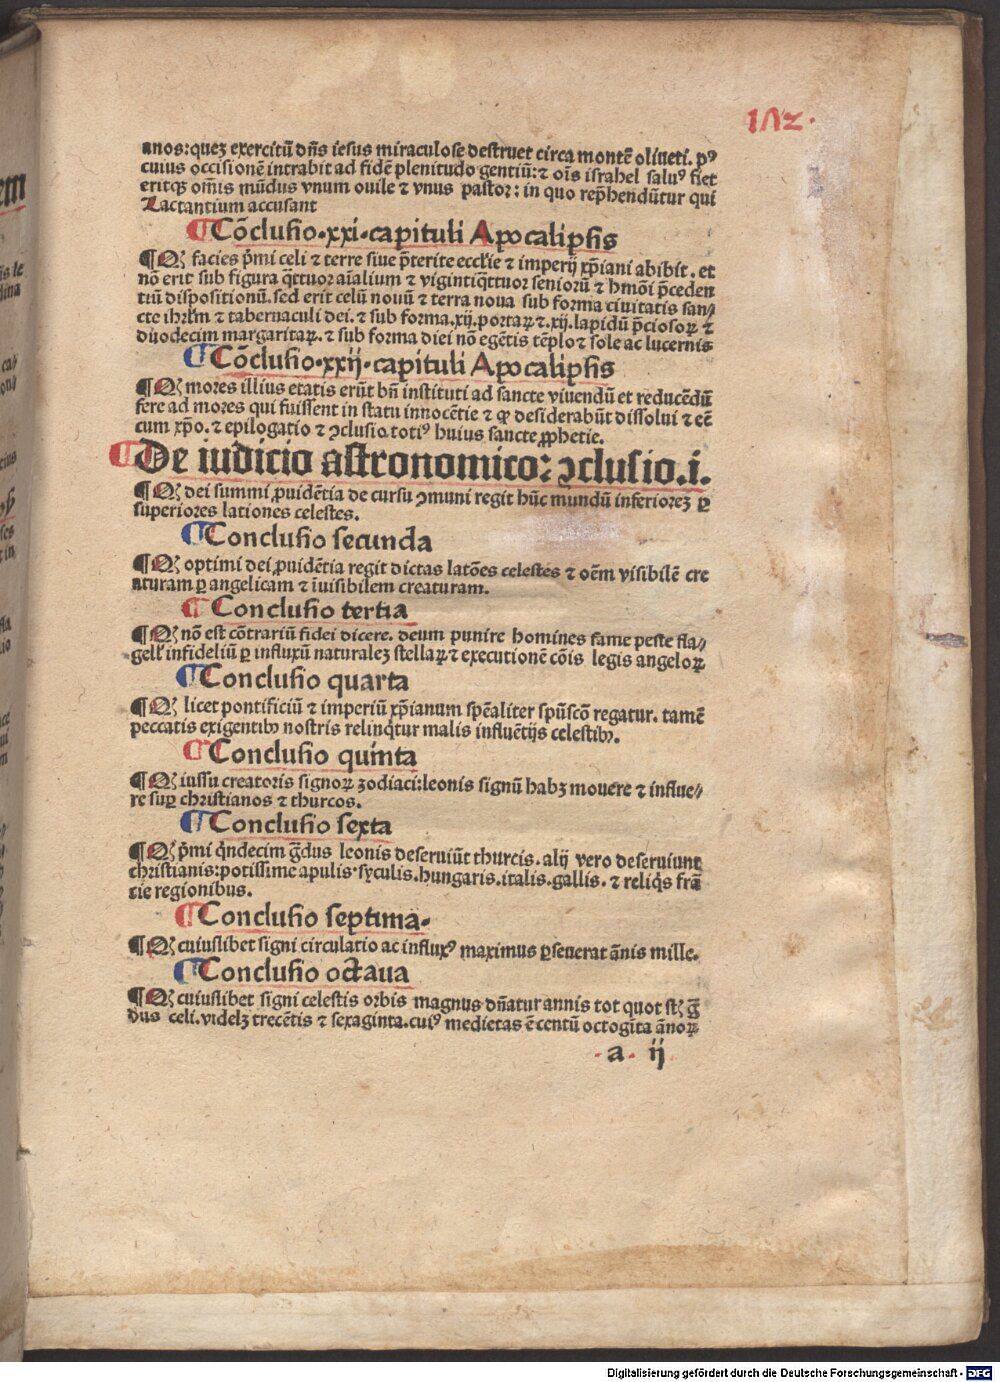 152.
anos:queȝ exercitū dñs iesus miraculose destruet circa montē oliueti. pꝰ
cuius occisionē intrabit ad fidē plenitudo gentiū: ⁊ oīs israhel saluꝰ fiet
eritqꝫ om̄is mūdus vnum ouile ⁊ vnus pastor: in quo rep̄hendūtur qui
Lactantium accusant
¶ Cōclusio·xxi·capituli Apocalipsis
¶ Qꝫ facies p̄mi celi ⁊ terre siue p̄terite eccl̄ie ⁊ imperij xp̄iani abibit. et
nō erit sub figura q̄ttuor aīalium ⁊ vigintiq̄ttuor seniorū ⁊ hmōi p̄ceden
tiū dispositionū. sed erit celū nouū ⁊ terra noua sub forma ciuitatis san⸗
cte ihrl̄m ⁊ tabernaculi dei. ⁊ sub forma.xij.portaꝝ ⁊.xij.lapidū p̄ciosoꝝ ⁊
duodecim margaritaꝝ. ⁊ sub forma diei nō egētis tēplo ⁊ sole ac lucernis
¶ Cōclusio·xxij·capituli Apocalipsis
¶ Qꝫ mores illius etatis erūt bn̄ instituti ad sancte viuendū et reducēdū
fere ad mores qui fuissent in statu innocētie ⁊ qꝫ desiderabūt dissolui ⁊ eē
cum xp̄o. ⁊ epilogatio ⁊ ꝯclusio totiꝰ huius sancte ꝓphetie.
¶ De iudicio astronomico: ꝯclusio.i.
¶ Qꝫ dei summi ꝓuidētia de cursu ꝯmuni regit hūc mundū inferioreȝ ꝑ
superiores lationes celestes.
¶ Conclusio secunda
¶ Qꝫ optimi dei ꝓuidētia regit dictas latōes celestes ⁊ oēm visibilē cre
aturam ꝑ angelicam ⁊ īuisibilem creaturam.
¶ Conclusio tertia
¶ Qꝫ nō est cōtrariū fidei dicere. deum punire homines fame peste fla⸗
gell' infideliū ꝑ influxū naturaleȝ stellaꝝ ⁊ executionē cōis legis angeloꝝ
¶ Conclusio quarta
¶ Qꝫ licet pontificiū ⁊ imperiū xp̄ianum spēaliter spūscō regatur. tamē
peccatis exigentibꝫ nostris relinq̄tur malis influētijs celestibꝫ.
¶ Conclusio quinta
¶ Qꝫ iussu creatoris signoꝝ zodiaci: leonis signū habȝ mouere ⁊ influe⸗
re suꝑ christianos ⁊ thurcos.
¶ Conclusio sexta
¶ Qꝫ p̄mi q̄ndecim ḡdus leonis deseruiūt thurcis. alij vero deseruiunt
christianis: potissime apulis·syculis.hungaris.italis.gallis. ⁊ reliq̄s frā
cie regionibus.
¶ Conclusio septima·
¶ Qꝫ cuiuslibet signi circulatio ac influxꝰ maximus ꝑseuerat ānis mille.
¶ Conclusio octaua
¶ Qꝫ cuiuslibet signi celestis orbis magnus dn̄atur annis tot quot st̄ ḡ
dus celi. videlȝ trecētis ⁊ sexaginta. cuiꝰ medietas ē centū octogīta ānoꝝ
·a· ij
Digitalisierung gefördert durch die Deutsche Forschungsgemeinschaft - DFG